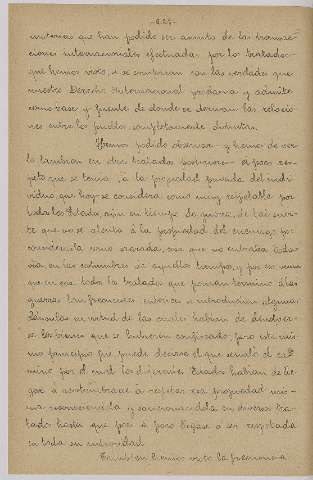 -825-
materias que han podido ser asunto de las transac-
ciones internacionales efectuadas por los tratados
que hemos visto, si se comparan con las verdades que
nuestro Derecho Internacional proclama y admite
como base y fuente de donde se derivan las relacio-
nes entre los pueblos completamente distintas.
Hemos podido observar y hemos de ver
lo también en otros tratados posteriores el poco res-
peto que se tenía á la propiedad privada del indi-
viduo que hoy se considera como muy respetable por
todos los Estados, aún en tiempo de guerra, de tal suer-
te que no se atenta á la propiedad del enemigo, por
considerarla como sagrada, cosa que no entraba toda-
vía en las costumbres de aquellos tiempos, y por eso vemos
que en casi todos los tratados que ponían término á las
guerras tan frecuentes entonces se introducían algunas
cláusulas en virtud de las cuales habían de devolver-
se los bienes que se hubieran confiscado, pero este mis-
mo principio que puede decirse el que señaló el ca-
mino por el cual los diferentes Estados habían de lle-
gar á acostumbrarse á respetar esa propiedad mis-
ma reconociéndola y sancionándola en diversos tra-
tados hasta que poco á poco llegase á ser respetada
en toda su integridad.
También hemos visto la